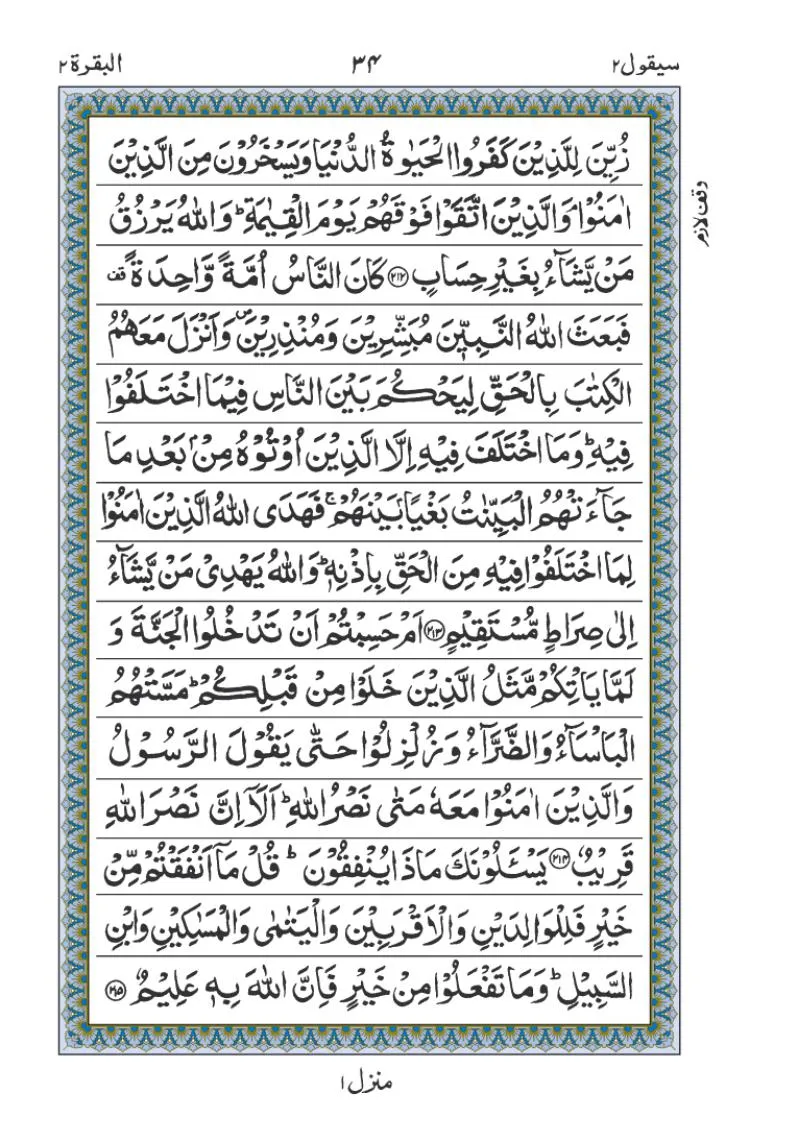 سيقول ٢ ٣٤ البقرة ٢
زُيِّنَ لِلَّذِيْنَ كَفَرُوا الْحَيٰوةُ الدُّنْيَا وَيَسْخَرُوْنَ مِنَ الَّذِيْنَ
اٰمَنُوْا ۘ وَالَّذِيْنَ اتَّقَوْا فَوْقَهُمْ يَوْمَ الْقِيٰمَةِ ؕ وَاللّٰهُ يَرْزُقُ
وقف لازم
مَنْ يَّشَآءُ بِغَيْرِ حِسَابٍ ﴿۲۱۲﴾ كَانَ النَّاسُ اُمَّةً وَّاحِدَةً ۟
فَبَعَثَ اللّٰهُ النَّبِيّٖنَ مُبَشِّرِيْنَ وَمُنْذِرِيْنَ ۪ وَاَنْزَلَ مَعَهُمُ
الْكِتٰبَ بِالْحَقِّ لِيَحْكُمَ بَيْنَ النَّاسِ فِيْمَا اخْتَلَفُوْا
فِيْهِ ؕ وَمَا اخْتَلَفَ فِيْهِ اِلَّا الَّذِيْنَ اُوْتُوْهُ مِنْۢ بَعْدِ مَا
جَآءَتْهُمُ الْبَيِّنٰتُ بَغْيًۢا بَيْنَهُمْ ۚ فَهَدَى اللّٰهُ الَّذِيْنَ اٰمَنُوْا
لِمَا اخْتَلَفُوْا فِيْهِ مِنَ الْحَقِّ بِاِذْنِهٖ ؕ وَاللّٰهُ يَهْدِيْ مَنْ يَّشَآءُ
اِلٰى صِرَاطٍ مُّسْتَقِيْمٍ ﴿۲۱۳﴾ اَمْ حَسِبْتُمْ اَنْ تَدْخُلُوا الْجَنَّةَ وَ
لَمَّا يَاْتِكُمْ مَّثَلُ الَّذِيْنَ خَلَوْا مِنْ قَبْلِكُمْ ؕ مَسَّتْهُمُ
الْبَاْسَآءُ وَالضَّرَّآءُ وَزُلْزِلُوْا حَتّٰى يَقُوْلَ الرَّسُوْلُ
وَالَّذِيْنَ اٰمَنُوْا مَعَهٗ مَتٰى نَصْرُ اللّٰهِ ؕ اَلَاۤ اِنَّ نَصْرَ اللّٰهِ
قَرِيْبٌ ﴿۲۱۴﴾ يَسْـَٔلُوْنَكَ مَاذَا يُنْفِقُوْنَ ؕ قُلْ مَاۤ اَنْفَقْتُمْ مِّنْ
خَيْرٍ فَلِلْوَالِدَيْنِ وَالْاَقْرَبِيْنَ وَالْيَتٰمٰى وَالْمَسٰكِيْنِ وَابْنِ
السَّبِيْلِ ؕ وَمَا تَفْعَلُوْا مِنْ خَيْرٍ فَاِنَّ اللّٰهَ بِهٖ عَلِيْمٌ ﴿۲۱۵﴾
منزل ١